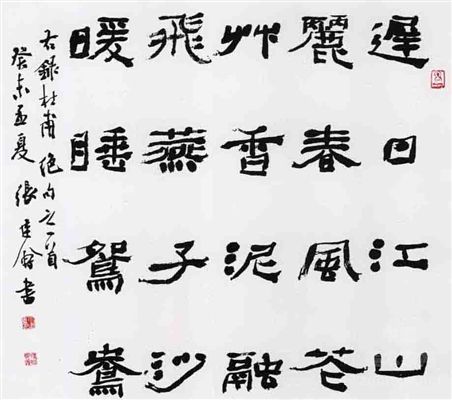 遲日江山
麗春風花
艸香泥融
飛燕子沙
暖睡鴛鴦
右錄杜甫绝句之一首
癸未孟夏張建會書